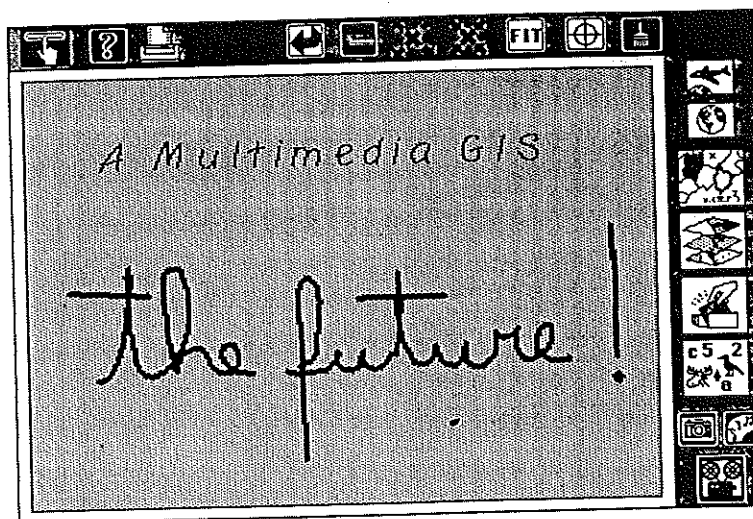 ?
FIT
A Multimedia GIS
the future!
c 5 2
a